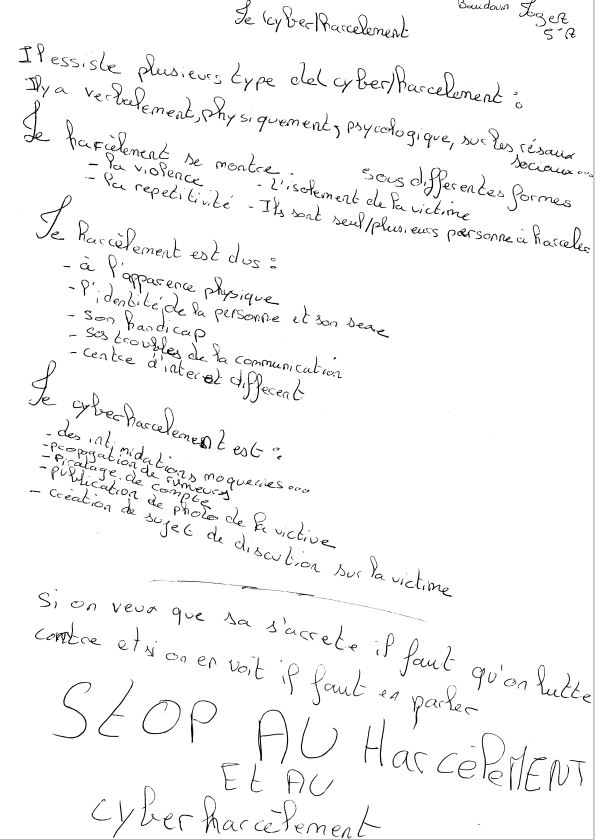 Baudouin Roger
5°A
Le cyber/harcelement
Il essiste plusieurs type del cyber/harcelement :
Il y a verbalement, physiquement, psycologique, sur les résaux
sociaux...
Le harcèlement se montre sous differentes formes
- la violence - L'isolement de la victime
- la repetitivité - Ils sont seul/plusieurs personne à harceler
Le harcèlement est dus :
- à l'apparence physique
- l'identité de la personne et son sexe
- son handicap
- ses troubles de la communication
- centre d'interet different
Le cyberharcelement est :
- des intimidations moqueries...
- propagation de rumeurs
- piratage de compte
- publication de photo de la victive
- création de sujet de discution sur la victime
Si on veux que sa s'arrete il faut qu'on lutte
contre et si on en voit il faut en parler
STOP AU HarcèleMENT
Et AU
cyberharcèlement